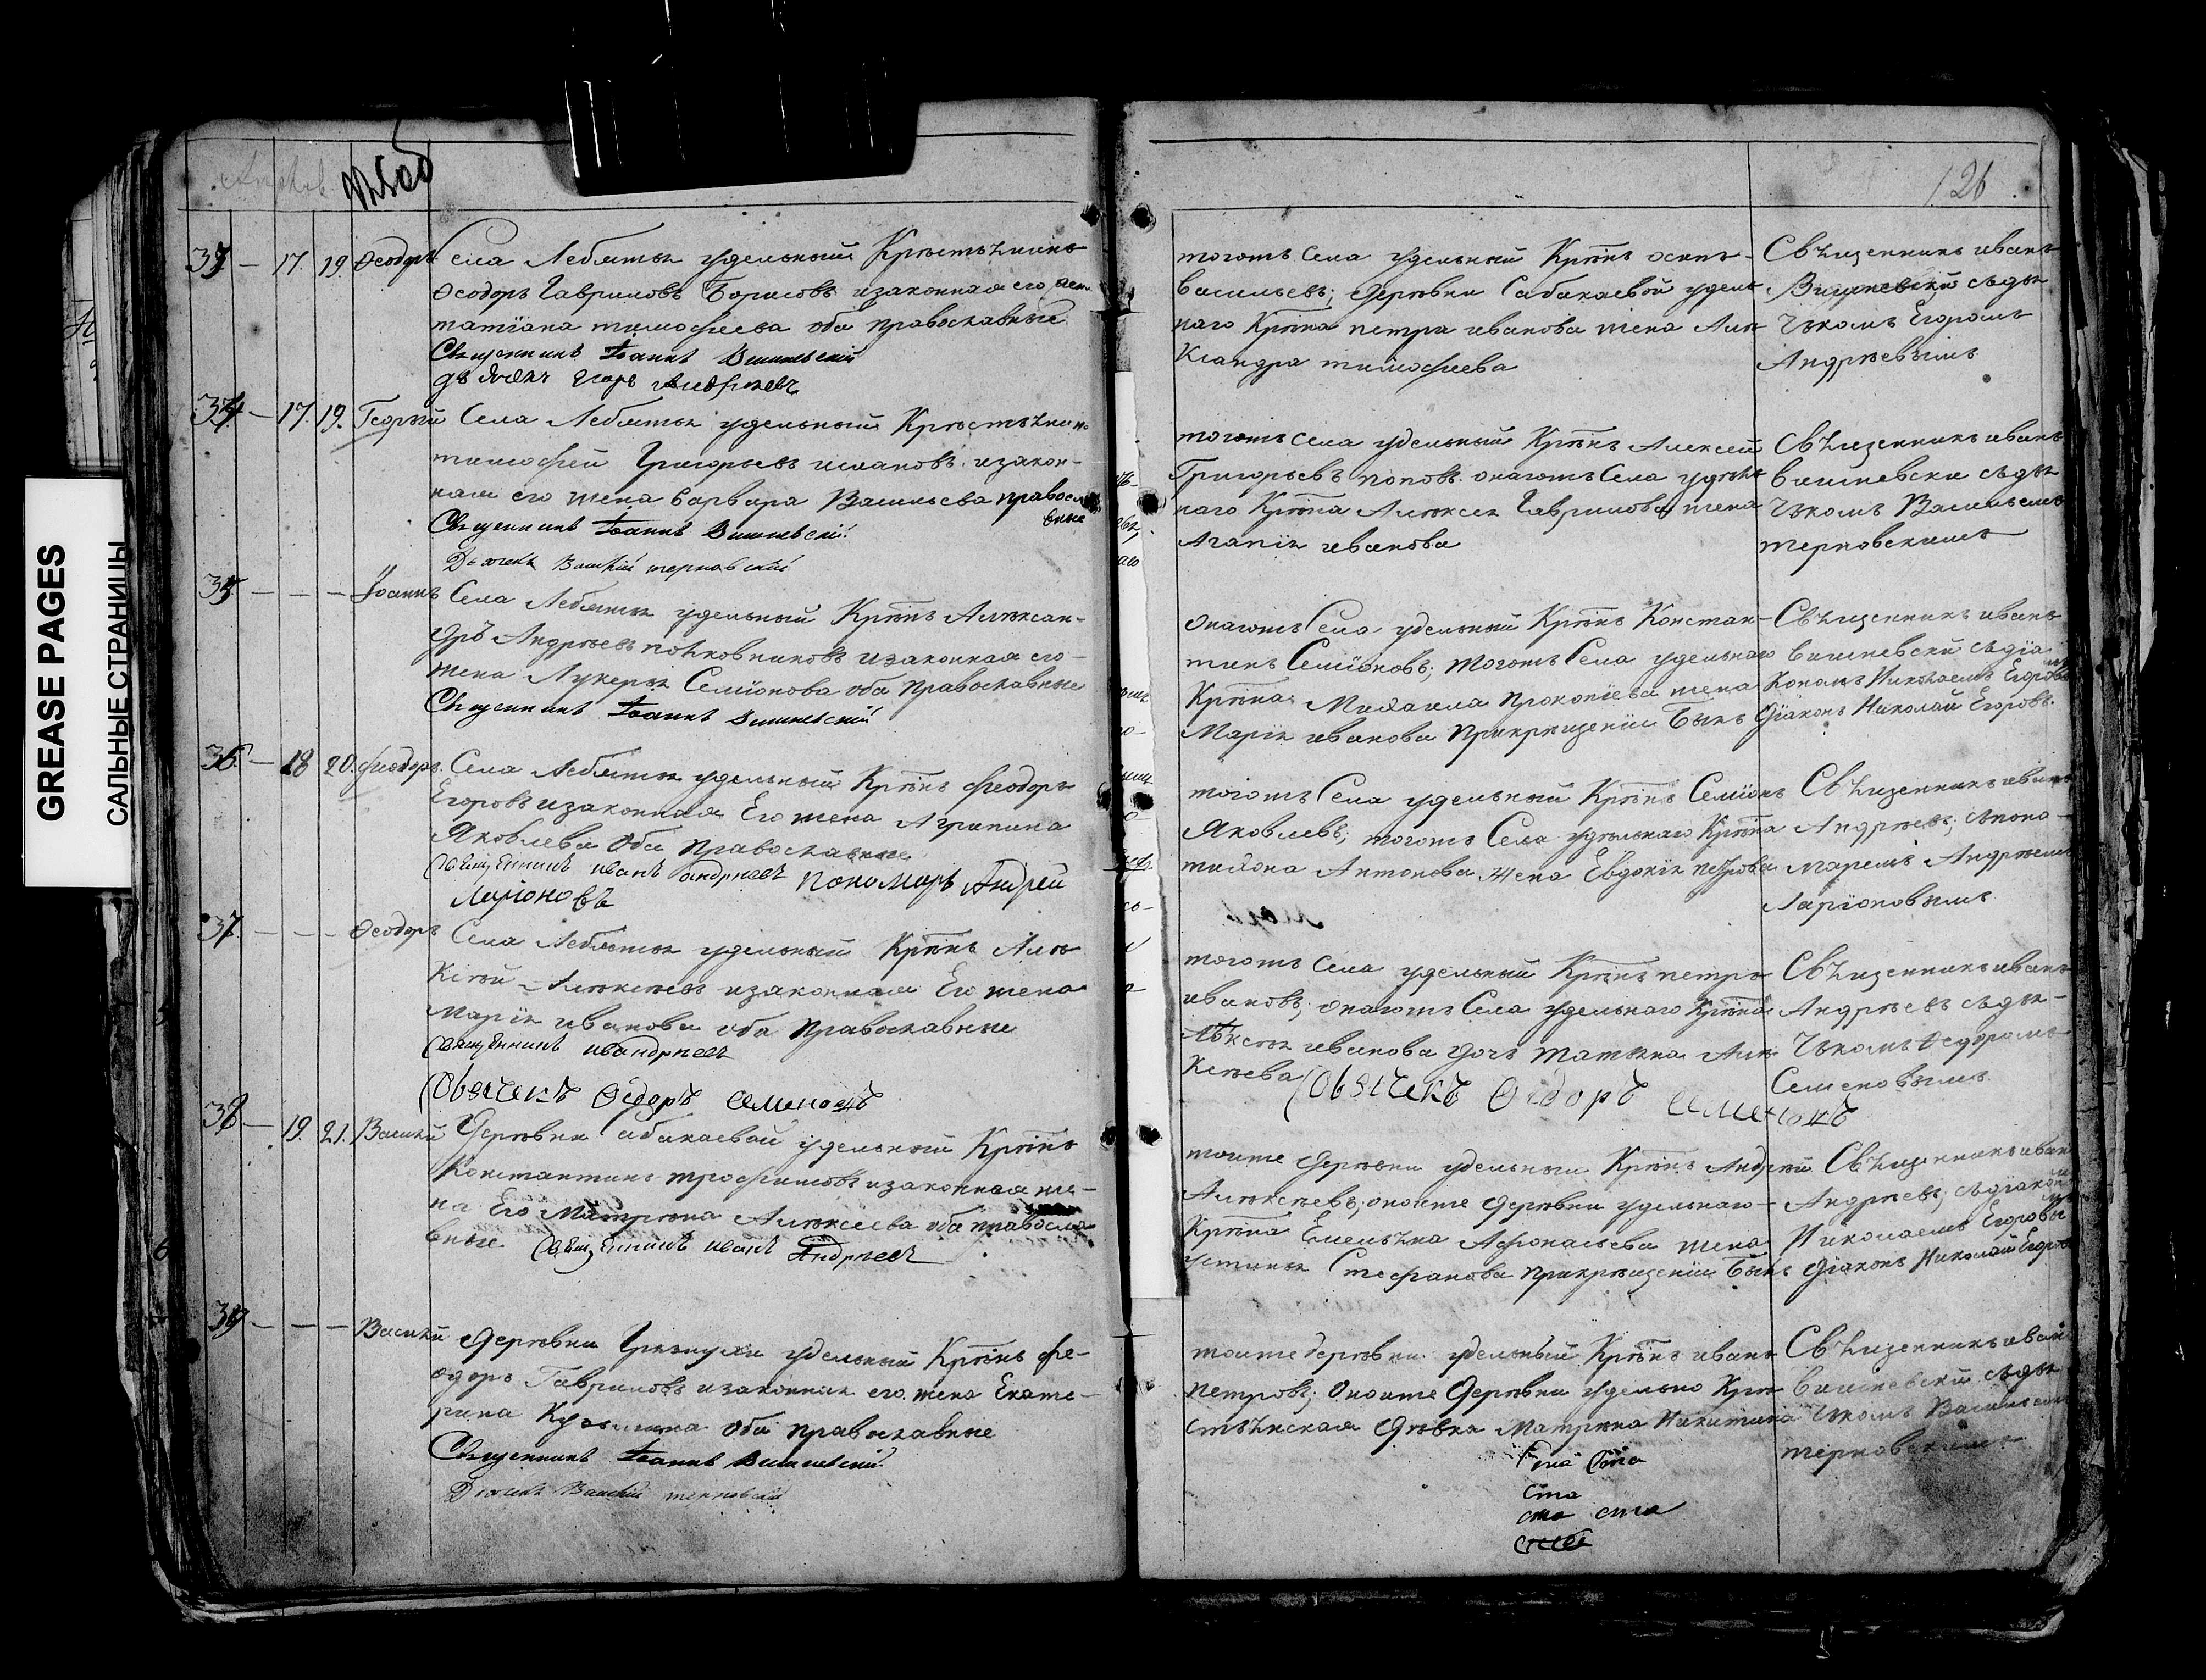 GREASE PAGES
САЛЬНЫЕ СТРАНИЦЫ
126
33 — 17. 19. Ѳеодоръ Села Лебяжья удельный Крестьянинъ
Ѳеодоръ Гавриловъ Борисовъ изаконная его жена
татіана тимофеева оба православные
Священникъ Іоаннъ Вишневскій
дьячекъ Егоръ Андреевъ
тогожъ Села удельный Крѣнъ осипъ
Васильевъ; деревни Сабакаевой удель
наго Крѣна петра иванова жена Алѣ
Ксандра тимофеева
Священникъ иванъ
Вишневскій сдья
чкомъ Егоромъ
Андреевымъ
34 — 17. 19. Георгий Села Лебяжья удельный Крестьянинъ
тимофей Григорьевъ изакон-
ная его жена варвара Васильева правосла
вные
Священникъ Іоаннъ Вишневскій
Дьячекъ Василій терновскій
тогожъ села удельный Крѣнъ Алексей
Григорьевъ поповъ. онагожъ Села удель
наго Крѣна Алексея Гаврилова жена
Агапия иванова
Священникъ иванъ
вишневски сдья
чкомъ Васильемъ
терновскимъ
35 — — — Іоаннъ Села Лебяжья удельный Крѣнъ Алексан-
дръ Андреевъ полковниковъ изаконная его
жена Лукерья Семіонова оба Православные
Священникъ Іоаннъ Вишневскій
Онагожъ Села удельный Крѣнъ Констан-
тинъ Семіоновъ; тогожъ Села удельнаго
Крѣна Михаила Прокопіева жена
Марія иванова Прикрещеніи Былъ Діаконъ Николай Егоровъ.
Священникъ иванъ
вишневскй сдіа
Кономъ Николаемъ Егоровымъ
36. — 18 20. феодоръ. Села Лебяжья удельный Крѣнъ феодоръ
Егоровъ изаконная Его жена Агрипина
Яковлева Оба Православные
Священникъ иванъ андреевъ пономарь Андрей
Ларіоновъ
тогожъ Села удельный Крѣнъ Семіонъ
Яковлевъ; тогожъ Села удельнаго Крѣна
тихона Антонова жена Евдокія петрова
Священникъ иванъ
Андреевъ; спono-
маремъ Андреемъ
Ларіоновымъ
37. — — — Ѳеодоръ Села Лебяжья удельный Крѣнъ Алѣ
Ксѣй Алексеевъ изаконная Его жена
Марія иванова оба Православные
Священникъ иванъ андреевъ
дьячекъ Ѳедоръ семеновъ
тогожъ Села удельный Крѣнъ петръ
ивановъ; онагожъ Села удельнаго Крѣна
иванова дочь татьяна Алѣ
Ксеева дьячекъ Ѳедоръ семеновъ
Священникъ иванъ
Андреевъ сдья-
чкомъ Ѳедоромъ
Семеновымъ
38 — 19. 21. Василий Деревни Сабакаевой удельный Крѣнъ
Константинъ трофимовъ изаконная же-
на Его Матрена Алексеева оба правосла
вные. Священникъ иванъ Андреевъ
тоиже деревни удельный Крѣнъ Андрей
Алексеевъ; оноиже деревни удельнаго
Крѣна Емельяна Афонасьева жена
устинья Стефанова Прикрещеніи Былъ діаконъ Николай Егоровъ
Священникъ иванъ
Андреевъ; сдіакономъ
Николаемъ Егоровым
39 — — — Василий деревни Грязнухи удельный Крѣнъ фе-
одоръ Гавриловъ изаконная его жена Екате-
рина Кузмина Оба православные
Священникъ Іоаннъ Вишневскій
Дьячекъ Василій терновскій
тоиже деревни удельный Крѣнъ иванъ
петровъ; Оноиже Деревни удельно Крѣ
стьянская девка Матрена Никитина
Священникъ иванъ
вишневскій сдья
чкомъ Васильемъ
терновскимъ
ста
ста ста